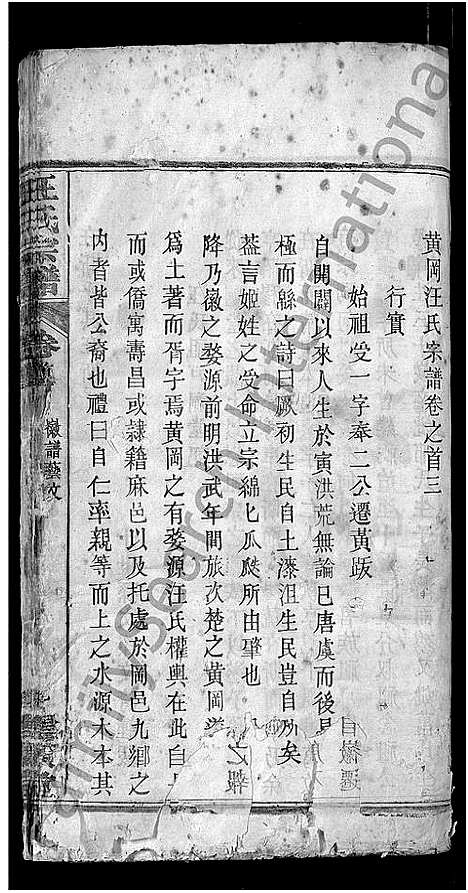 黃岡汪氏宗譜卷之首三
行實
始祖受一字奉二公遷黃䟦
自開闢以來人生於寅洪荒無論已唐虞而後
極而緜之詩曰厥初生民自土漆沮生民豈自
矣
葢言姬姓之受命立宗綿匕瓜瓞所由肇也
降乃徽之婺源前明洪武年間旅次楚之黃岡
為土著而胥宇焉黃岡之有婺源汪氏權輿在此自
而或僑寓壽昌或隷籍麻邑以及托處於岡邑九鄉之
內者皆公裔也禮曰自仁率親等而上之水源木本其
汪氏宗譜
卷首
徽譜藝文
FamilySearch International